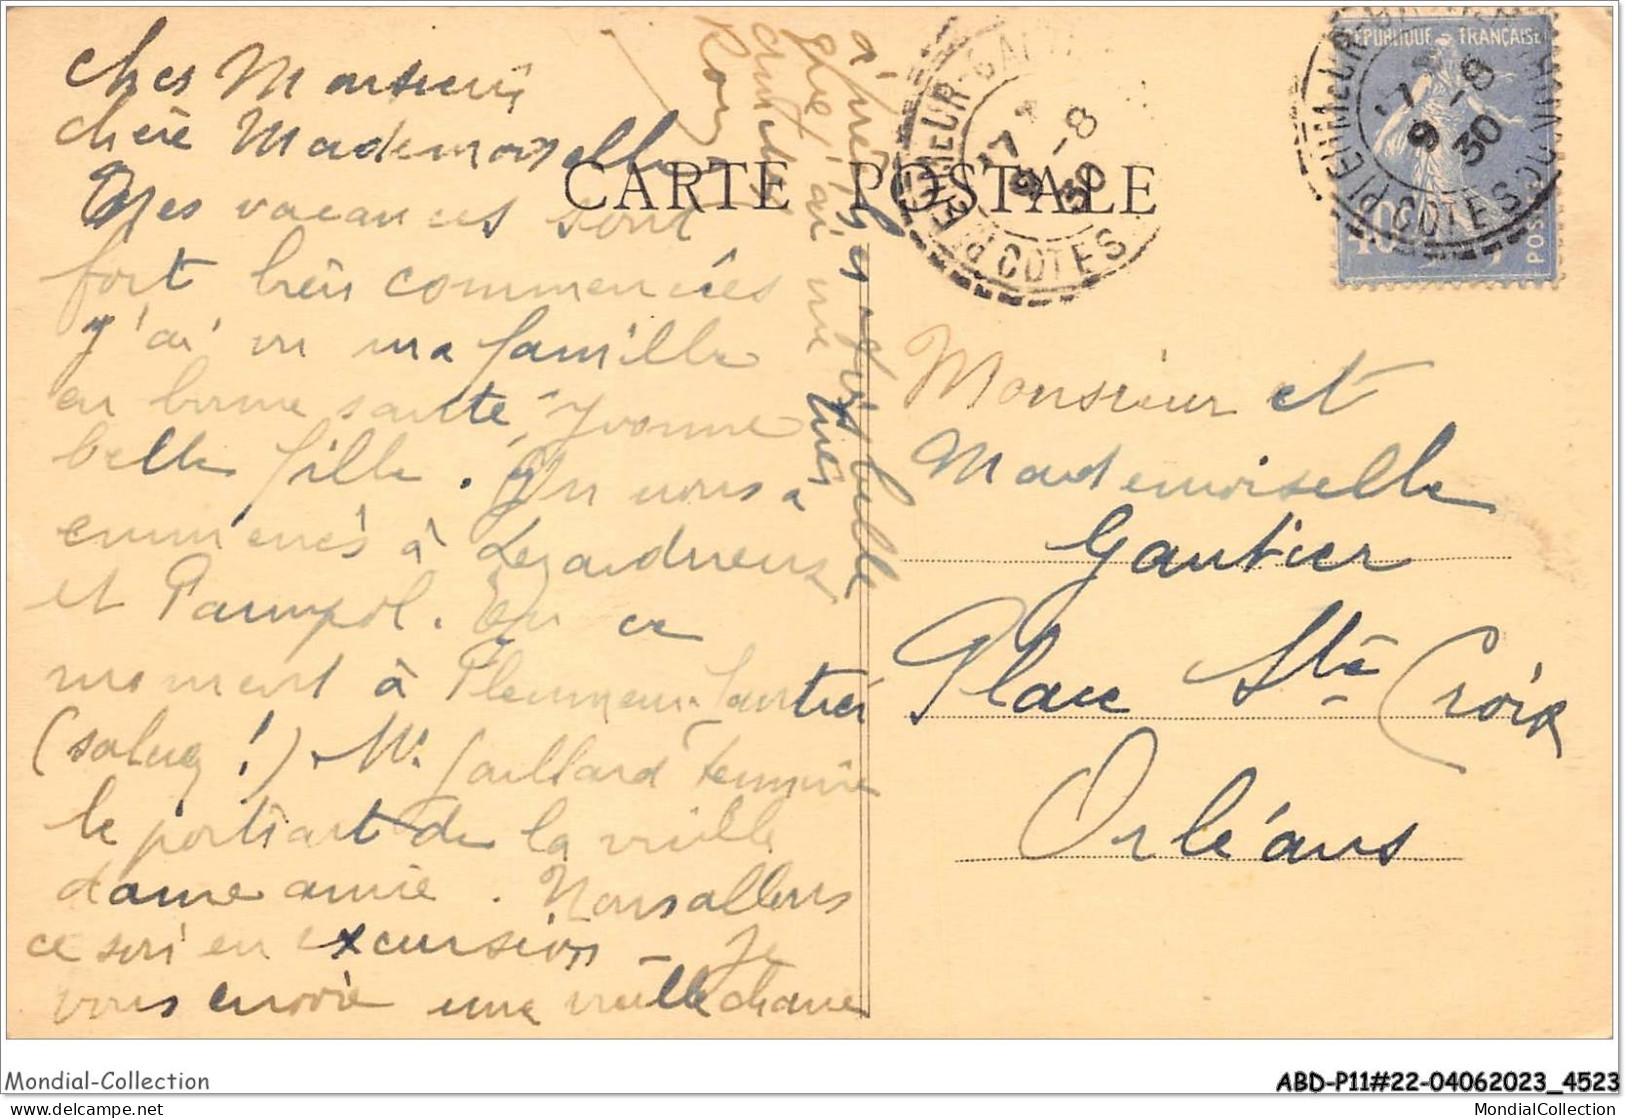 Cher Monsieur
Chère Mademoiselle
Mes vacances sont
fort bien commencées
J'ai vu ma famille
en bonne santé, Yvonne
belle fille. On nous a
emmenés à Lezardrieux
et Paimpol. En ce
moment à Pleumeur-Gautier
(salut !). Mr. Gaillard termine
le portrait de la vieille
dame amie. Nous allons
ce soir en excursion - Je
vous envoie une vieille dame
à
que j'ai vue hier
très belle
CARTE POSTALE
PLEUMEUR-GAUTIER
17
9 -8
30
COTES
REPUBLIQUE FRANÇAISE
40c
POSTES
PLEUMEUR-GAUTIER
17
9 -8
30
COTES DU NORD
Monsieur et
Mademoiselle
Gautier
Place Ste Croix
Orléans
Mondial-Collection
ABD-P11#22-04062023_4523
delcampe.net
MondialCollection